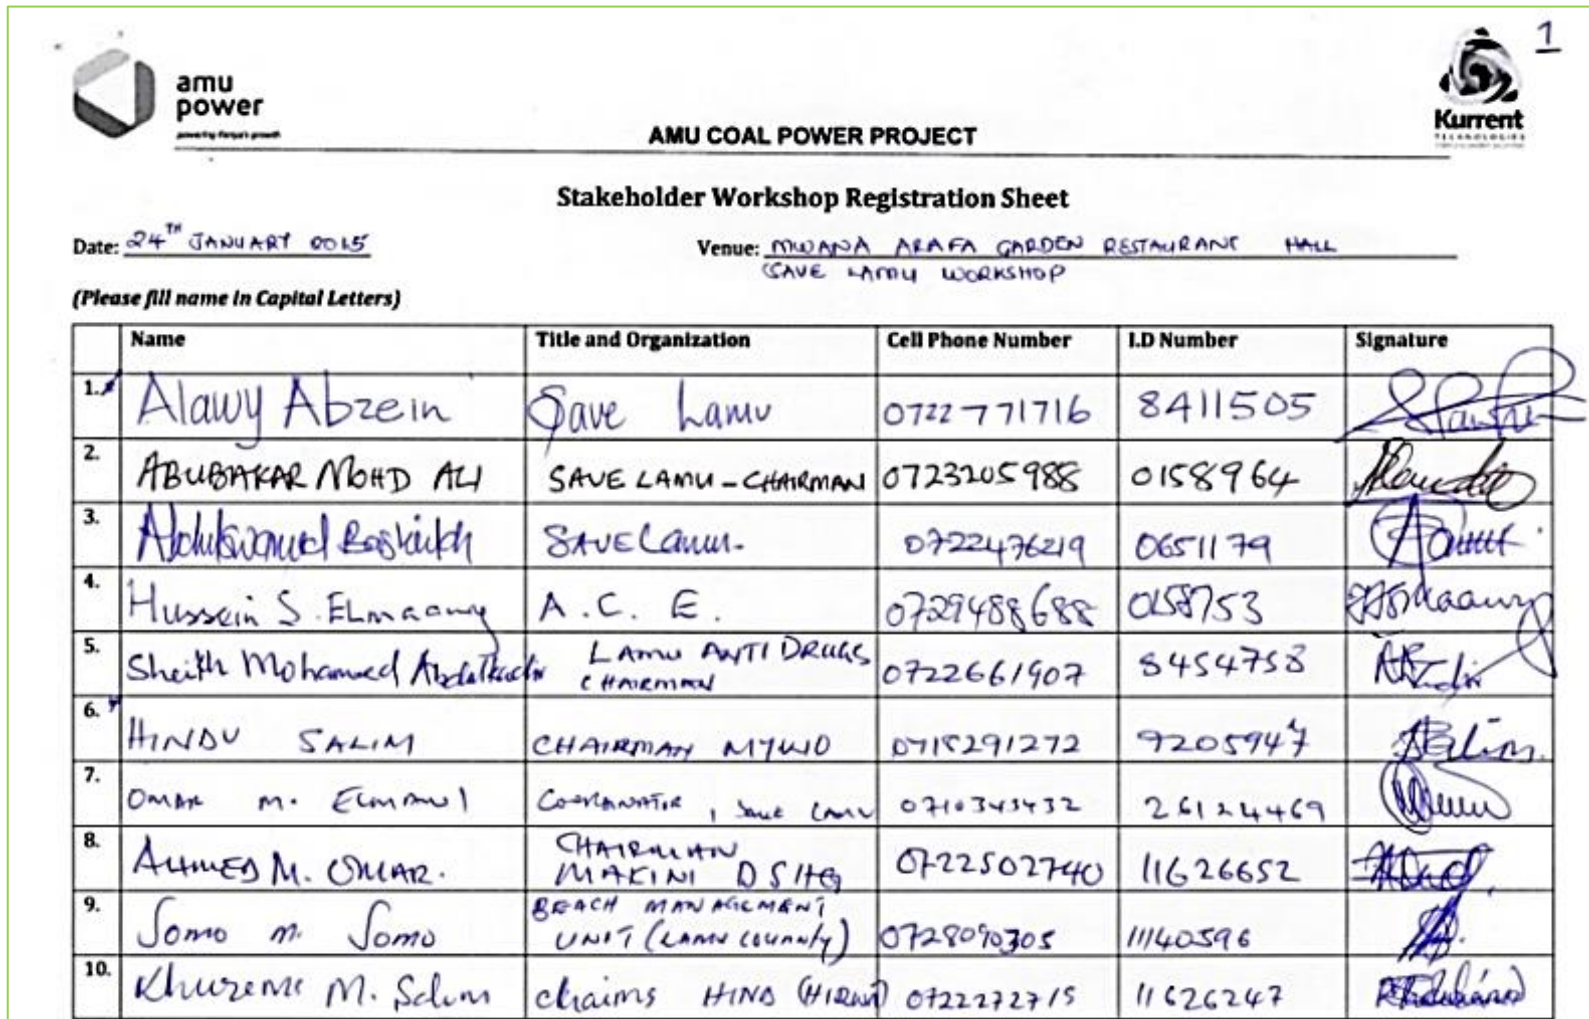 1
amu
power
powering Kenya's growth
Kurrent
TECHNOLOGIES
AMU COAL POWER PROJECT
Stakeholder Workshop Registration Sheet
Date: 24TH JANUARY 2015
Venue: MWANA ARAFA GARDEN RESTAURANT HALL
(SAVE LAMU WORKSHOP
(Please fill name in Capital Letters)
Name Title and Organization Cell Phone Number I.D Number Signature
1. Alawy Abzein Save Lamu 0722771716 8411505
2. ABUBAKAR MOHD ALI SAVE LAMU - CHAIRMAN 0723205988 0158964
3. SAVE Lamu. 0722476219 0651179
4. Hussein S. Elmaawy A.C.E. 0729488688 0158753
5. Sheikh Mohamed Abdalkadir LAMU ANTI DRUGS
CHAIRMAN 0722661907 8454758
6. HINDU SALIM CHAIRMAN MYWO 0715291272 9205947
7. OMAR M. ELMAWI , Save Lamu 0710343432 26124469
8. AHMED M. OMAR. CHAIRMAN
MAKINI DSHG 0722502740 11626652
9. Somo M. Somo BEACH MANAGEMENT
UNIT (LAMU COUNTY) 0728090305 11140596
10. M. Salum 0722272715 11626247